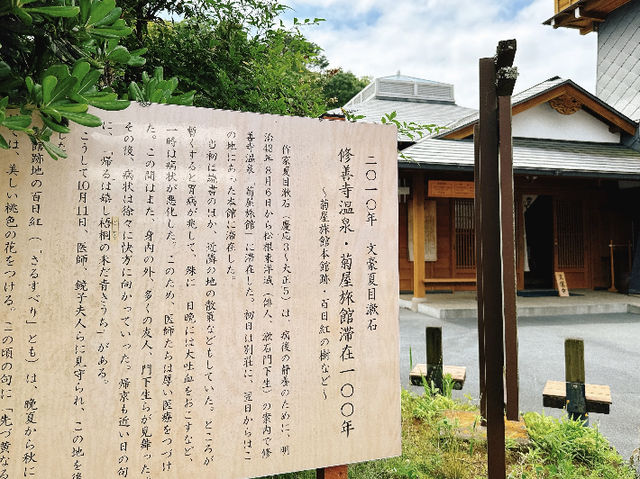 二〇一〇年 文豪夏目漱石
修善寺温泉・菊屋旅館滞在一〇〇年
～菊屋旅館本館跡・百日紅の樹など～
作家夏目漱石(慶応3～大正5)は、病後の静養のために、明
治43年8月6日から松根東洋城(俳人、漱石門下生)の案内で修
善寺温泉「菊屋旅館」に滞在した。初日は別荘に、翌日からはこ
の地にあった本館に滞在した。
当初は読書のほか、近隣の地の散策などもしていた。ところが
暫くすると胃病が兆して、殊に 日晩には大吐血をおこすなど、
一時は病状が悪化した。このため、医師たちは厚い医療をつづけ
た。この間はまた、身内の外、多くの友人、門下生らが見舞った。
その後、病状は徐々に快方に向かっていった。帰京も近い日の句
に、「帰るは嬉し梧桐の未だ青きうち」がある。
こうして10月11日、医師、鏡子夫人らに見守られ、この地を後
た。
館跡地の百日紅(、さるすべり」とも)は、晩夏から秋に
は、美しい桃色の花をつける。この頃の句に「先づ黄なる